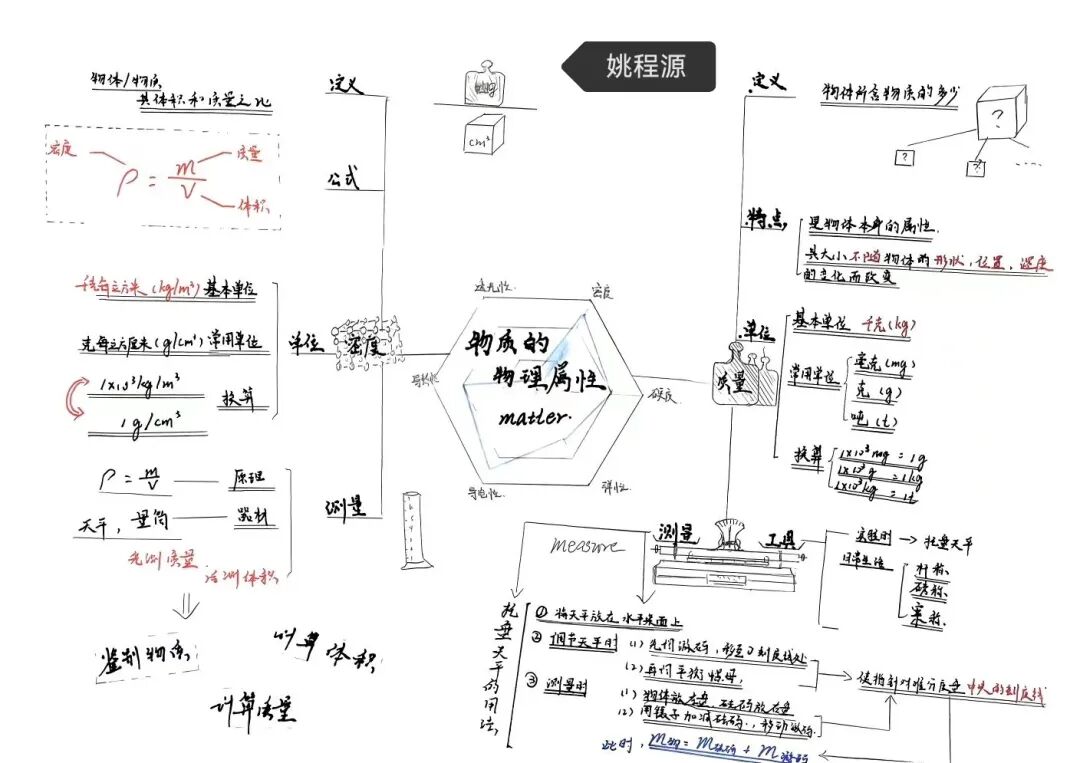 姚程源
物体/物质
其体积和质量之比
定义
密度
质量
ρ = m/V
体积
公式
千克每立方米 (kg/m³) 基本单位
克每立方厘米 (g/cm³) 常用单位
1×10³kg/m³
1g/cm³
换算
单位
密度
ρ = m/V
原理
天平，量筒
器材
先测质量
后测体积
测量
鉴别物质
计算体积
计算质量
cm³
透光性
密度
导热性
硬度
导电性
弹性
物质的
物理属性
matter.
定义
物体所含物质的多少
?
?
?
特点
是物体本身的属性.
其大小不随物体的形状，位置，温度
的变化而改变
单位
基本单位 千克(kg)
常用单位
毫克(mg)
克(g)
吨(t)
换算
1×10³mg = 1g
1×10³g = 1kg
1×10³kg = 1t
质量
测量
工具
measure
实验时
托盘天平
日常生活
杆称
案称.
托盘天平的用法
① 将天平放在水平桌面上
② 调节天平时
(1)
(2) 再调平衡螺母，
使指针对准分度盘中央的刻度线
③ 测量时
(1) 物体放左盘，砝码放右盘
(2) 用镊子加减砝码，移动游码.
此时，m物 = m砝码 + m游码